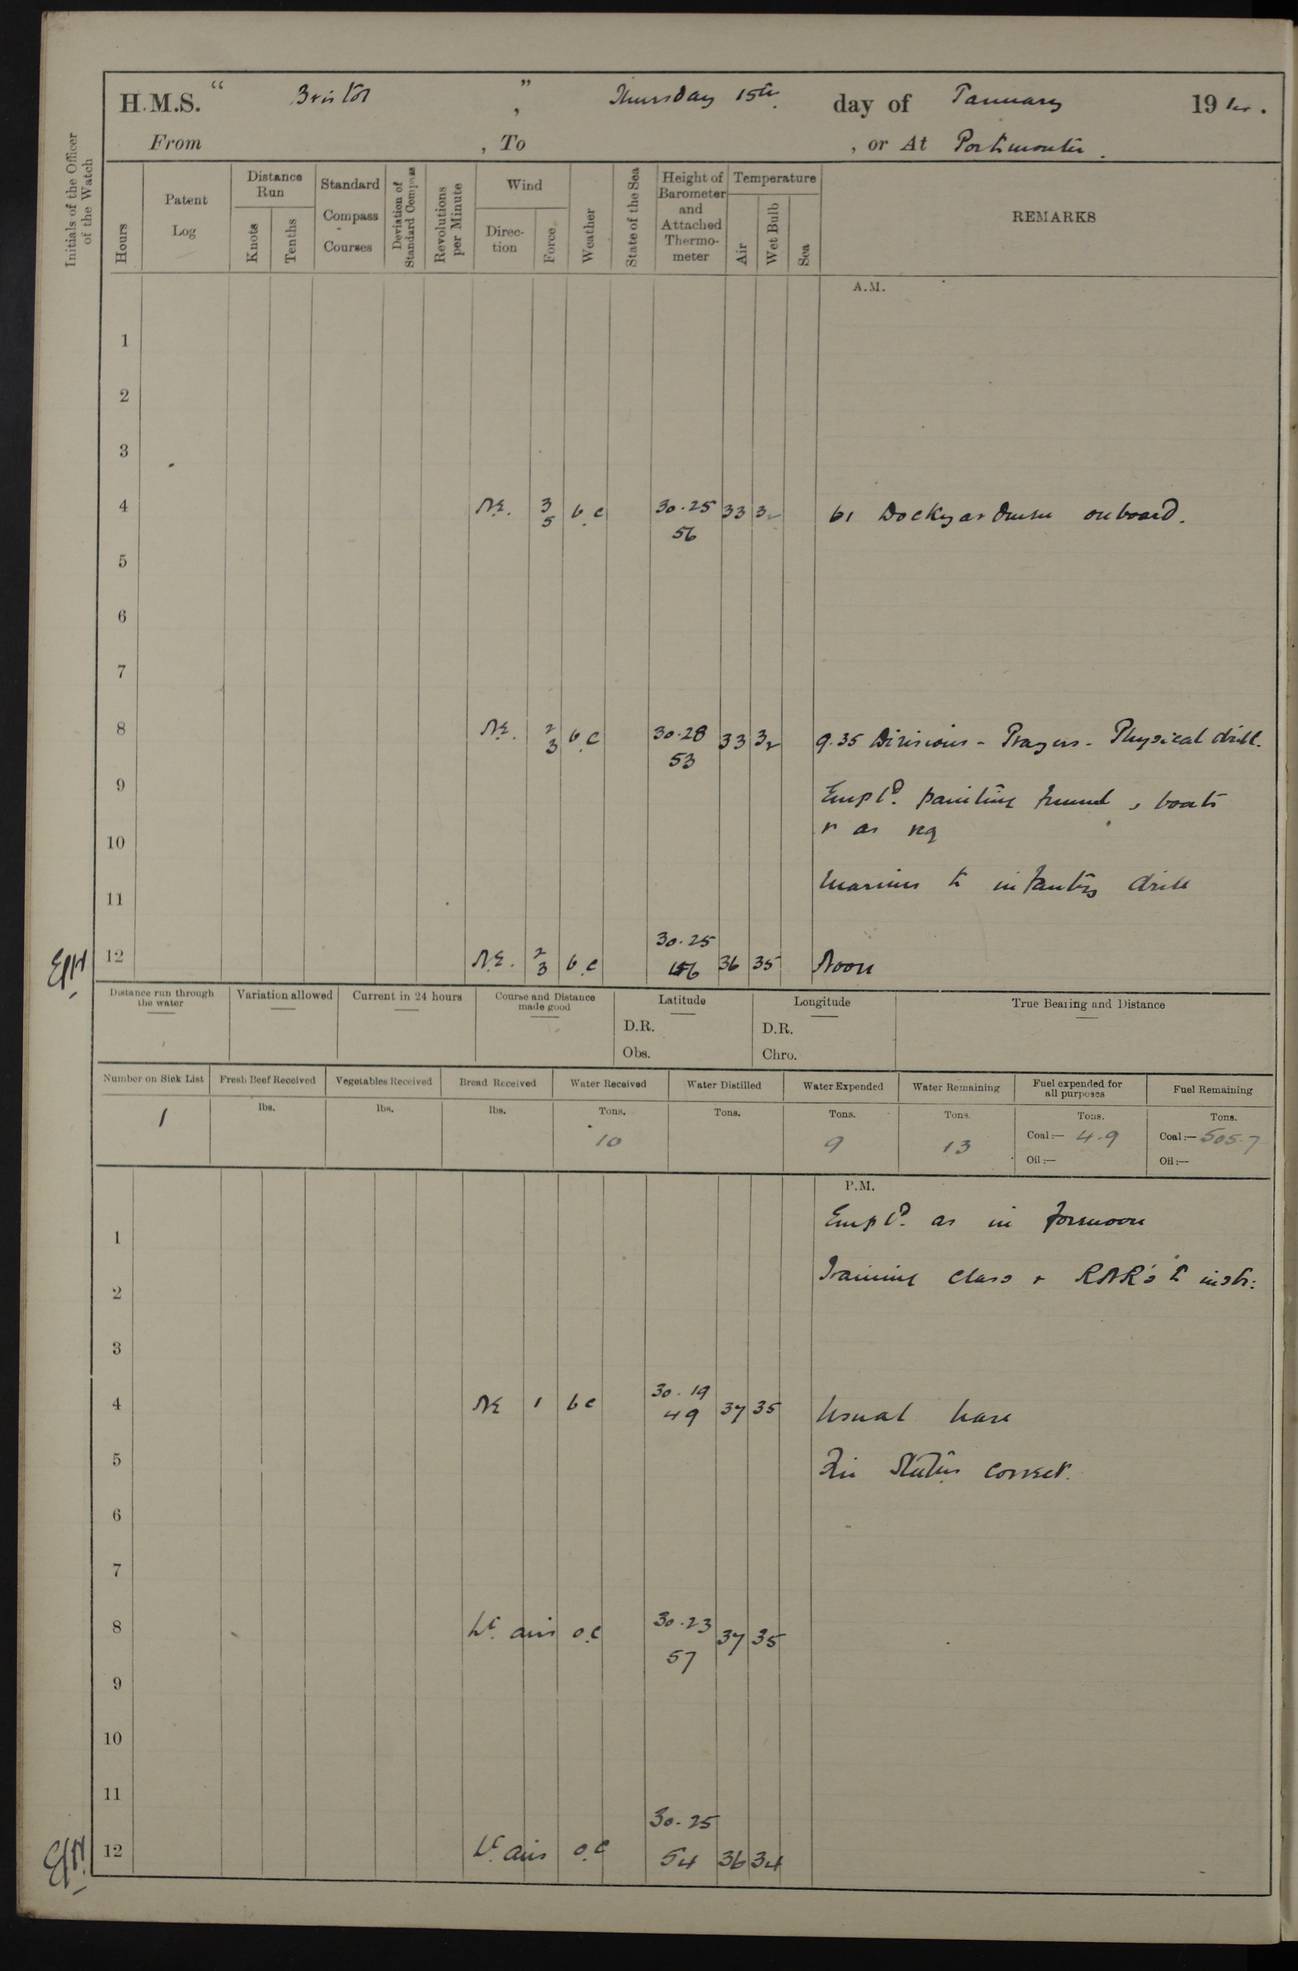 H.M.S. " Bristol ", Thursday 15th day of January 19
From , To , or At Portsmouth.
Initials of the Officer of the Watch
Hours
Patent Log
Distance Run
Knots
Tenths
Standard Compass Courses
Deviation of Standard Compass
Revolutions per Minute
Wind
Direction
Force
Weather
State of the Sea
Height of Barometer and Attached Thermometer
Temperature
Air
Wet Bulb
Sea
REMARKS
A.M.
1
2
3
4 N.E. 3/5 b.c 30.25 56 33 32 61 Dockyard men onboard.
5
6
7
8 N.E. 2/3 b.c 30.28 53 33 32 9.35 Divisions - Prayers - Physical drill.
9 Empld. painting funnel, boats
10 & as req
11 Marines to infantry drill
12 N.E. 2/3 b.c 30.25 56 36 35 Noon
Distance run through the water
Variation allowed
Current in 24 hours
Course and Distance made good
Latitude
D.R.
Obs.
Longitude
D.R.
Chro.
True Bearing and Distance
Number on Sick List
1
Fresh Beef Received
lbs.
Vegetables Received
lbs.
Bread Received
lbs.
Water Received
Tons.
10
Water Distilled
Tons.
Water Expended
Tons.
9
Water Remaining
Tons.
13
Fuel expended for all purposes
Tons.
Coal:— 4.9
Oil:—
Fuel Remaining
Tons.
Coal:— 505.7
Oil:—
P.M.
Empld. as in forenoon
1
Training class & RNR's to instr:
2
3
4 NE 1 bc 30.19 49 37 35 Usual leave
5 Fire Stations correct.
6
7
8 Lt. airs o.c 30.23 57 37 35
9
10
11
12 Lt. airs o.c 30.25 54 36 34